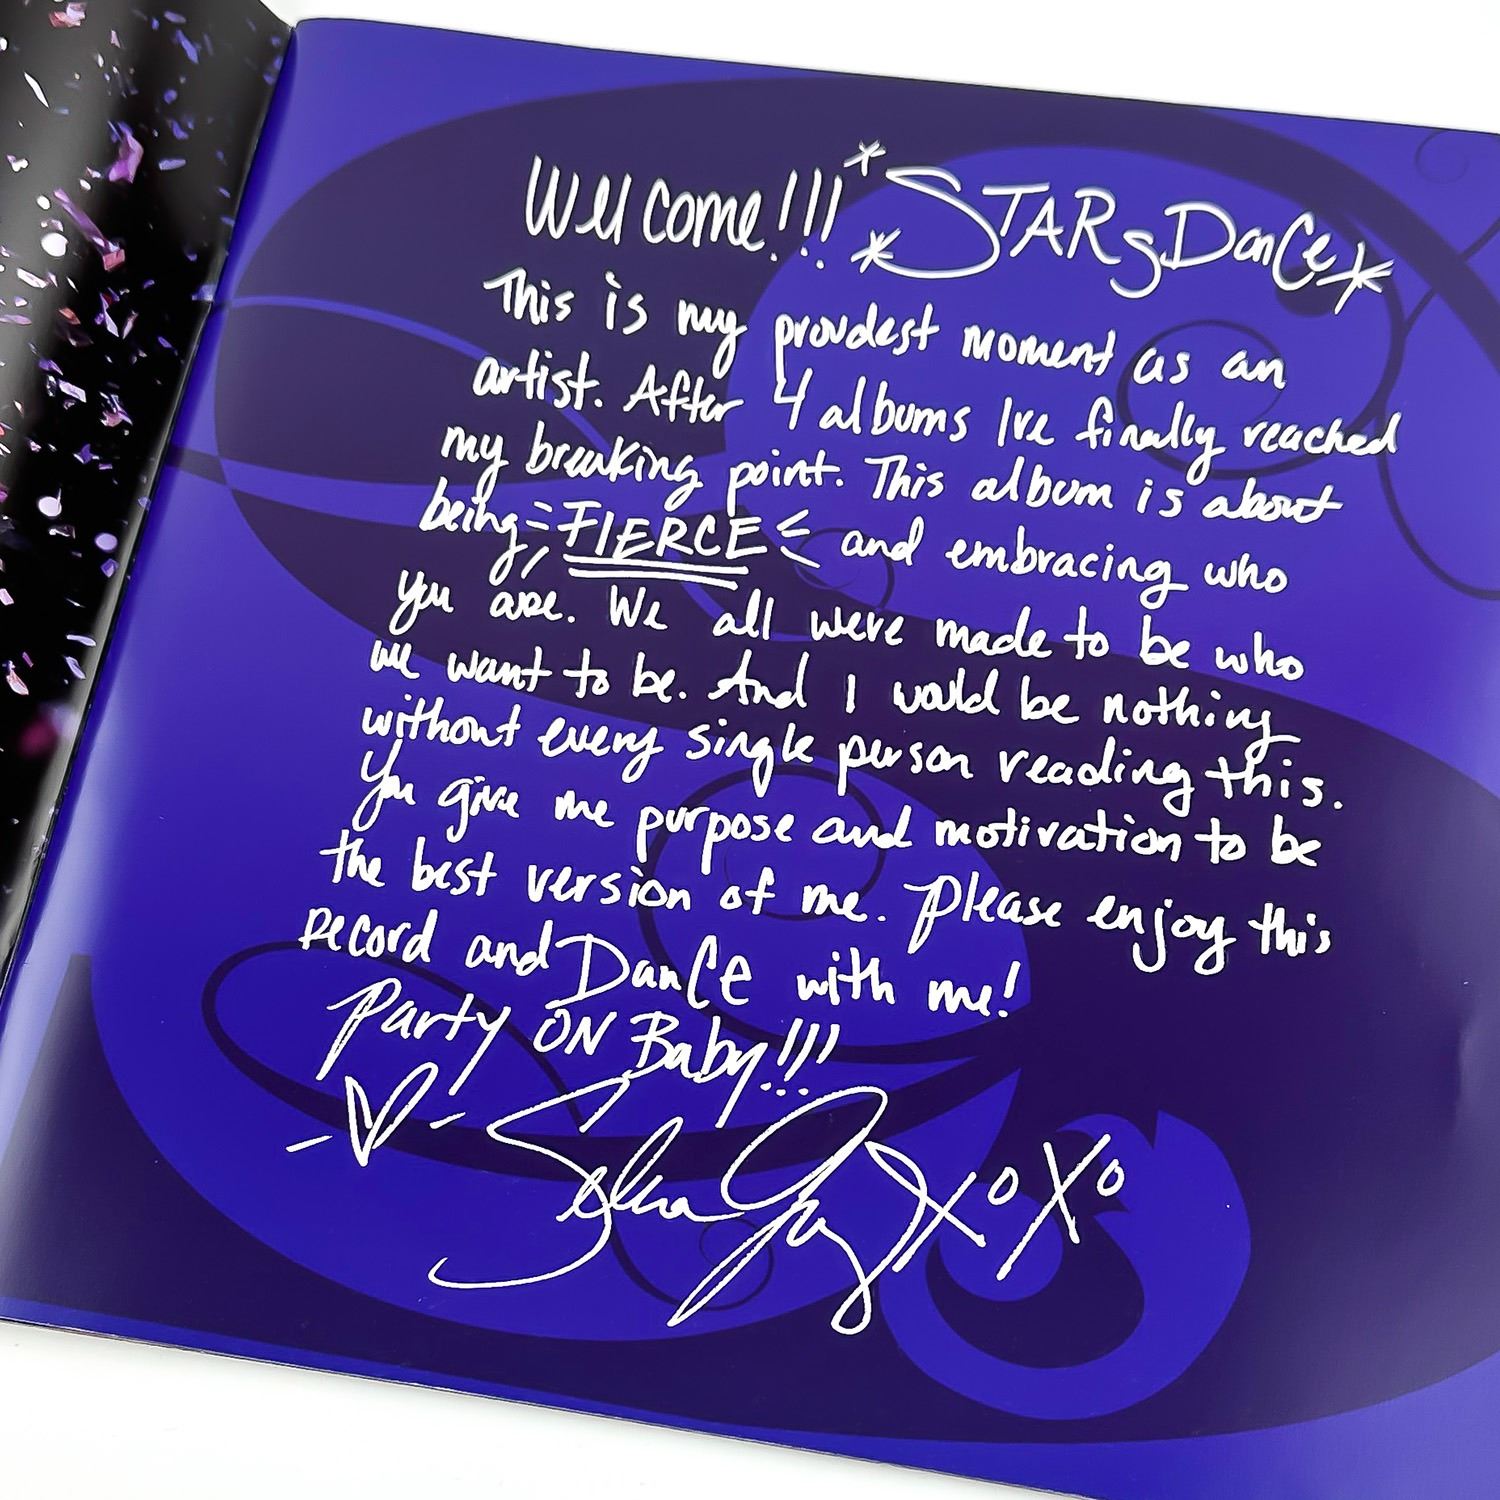 Welcome!!! *STARS DanCe*
This is my proudest moment as an
artist. After 4 albums Ive finally reached
my breaking point. This album is about
being FIERCE and embracing who
you are. We all were made to be who
we want to be. And I would be nothing
without every single person reading this.
You give me purpose and motivation to be
the best version of me. Please enjoy this
record and DanCe with me!
Party ON Baby!!!
Selena Gomez XoXo